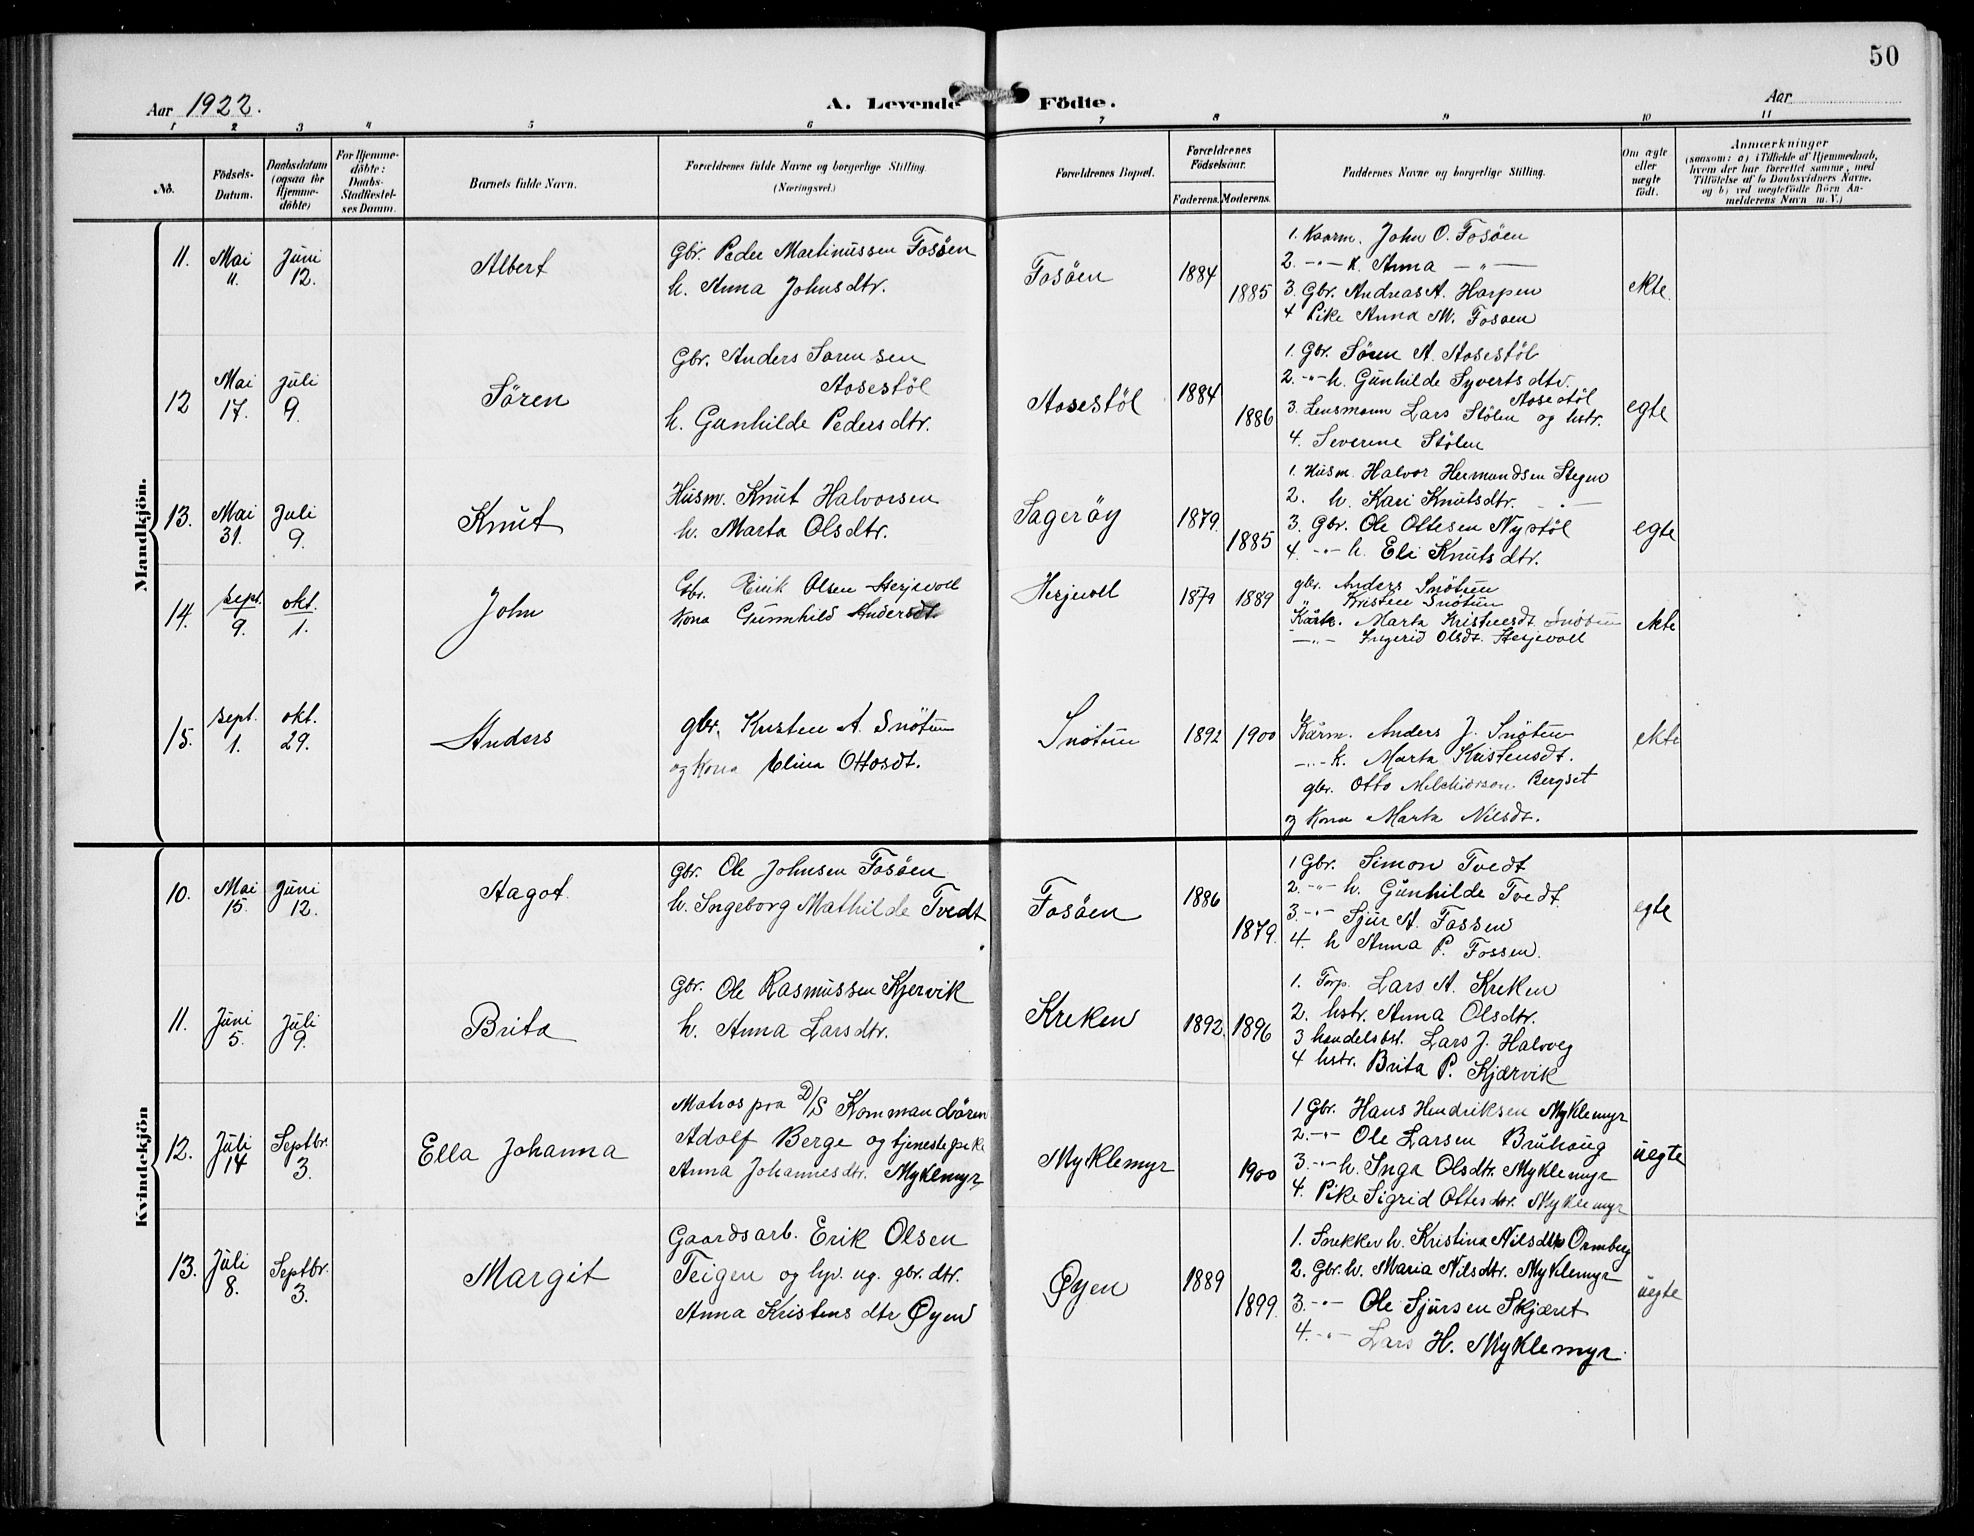 50
Aar 1922.
A. Levende Födte.
Aar
1 2 3 4 5 6 7 8 9 10 11
No.
Födsels-Datum.
Daabsdatum (ogsaa for Hjemme-döbte)
For Hjemme-döbte: Daabs-Stadfæstel-ses Datum.
Barnets fulde Navn.
Forældrenes fulde Navne og borgerlige Stilling. (Næringsvei.)
Forældrenes Bopæl.
Forældrenes Födselsaar.
Faderens. Moderens.
Faddernes Navne og borgerlige Stilling.
Om ægte eller uægte födt.
Anmærkninger
(saasom: a) i Tilfælde af Hjemmedaab,
hvem der har forrettet samme, med
Tilföielse af to Daabsvidners Navne.
og b) ved uægtefödte Börn An-
melderens Navn m. V.)
Mandkjön.
11. Mai 11. Juni 12. Albert
Gbr. Peder Martinussen Fosöen
h. Anna Johnsdtr.
Fosöen 1884 1885
1. Kaarm. John O. Fosöen
2. -"- k. Anna -"-
3. Gbr. Andreas A. Harpen
4 Pike Anna M. Fosöen
ekte.
12 Mai 17. Juli 9. Sören
Gbr. Anders Sörensen
Aasestöl
h. Gunhilde Pedersdtr.
Aasestöl 1884 1886
1. Gbr. Sören A. Aasestöl
2. -"- h. Gunhilde Syvertsdtr.
Aasestöl
3. Lensmann Lars Stölen og hstr.
4. Severine Stölen
egte
13. Mai 31. Juli 9. Knut
Husm. Knut Halvorsen
h. Marta Olsdtr.
Sageröy 1879. 1885
1. Husm. Halvor Hermundsen Stegen
2. h. Kari Knutsdtr. -"-
3. Gbr. Ole Ottesen Nystöl
4. -"- h. Eli Knutsdtr.
egte
14. sept. 9. okt. 1. John
Gbr. Erik Olsen Hesjevoll
Kona Gunnhild Andersdt.
Hesjevoll 1879 1889
gbr. Anders Snötun
" Kristen Snötun
Kårk. Marta Kristensdt. Snötun
-"- Ingerid Olsdt. Hesjevoll
ekte
15. sept. 1. okt. 29. Anders
gbr. Kristen A. Snötun
og Kona Elina Ottosdt.
Snötun 1892 1900
Kårm. Anders J. Snötun
-"- k. Marta Kristensdt.
gbr. Otto Melchiorson Bergset
og Kona Marta Nilsdt.
ekte
Kvindekjön
10. Mai 15. Juni 12. Aagot
Gbr. Ole Johnsen Fosöen
h. Ingeborg Mathilde Tvedt
Fosöen 1886 1879.
1 Gbr. Simon Tvedt
2. -"- h. Gunhilde Tvedt.
3. -"- Sjur A. Fossen
4. h Anna P. Fossen.
egte
11. Juni 5. Juli 9. Brita
Gbr. Ole Rasmussen Kjervik
h. Anna Larsdtr.
Kreken 1892. 1896
1. Torp. Lars A. Kreken
2. hstr. Anna Olsdtr.
3 handelsbst. Lars J. Halvveg
4 hstr. Brita P. Kjærvik
12. Juli 14 Septbr. 3. Ella Johanna
Matros paa D/S Kommandören
Adolf Berge og tjenestepike
Anna Johannesdtr. Myklemyr
Myklemyr 1900
1 Gbr. Hans Hendriksen Myklemyr
2. -"- Ole Larsen Bruhaug
3. -"- h. Inga Olsdtr. Myklemyr
4. Pike Sigrid Ottesdtr. Myklemyr
uegte
13. Juli 8. Septbr. 3. Margit
Gaardsarb. Erik Olsen
Teigen og hjv. ug. gbr. dtr.
Anna Kristensdtr Öyen
Öyen 1889 1899.
1. Snekker h. Kristina Nilsdtr Ormberg
2. Gbr. h. Maria Nilsdtr. Myklemyr
3. -"- Ole Sjursen Skjæret
4. -"- Lars H. Myklemyr.
uegte